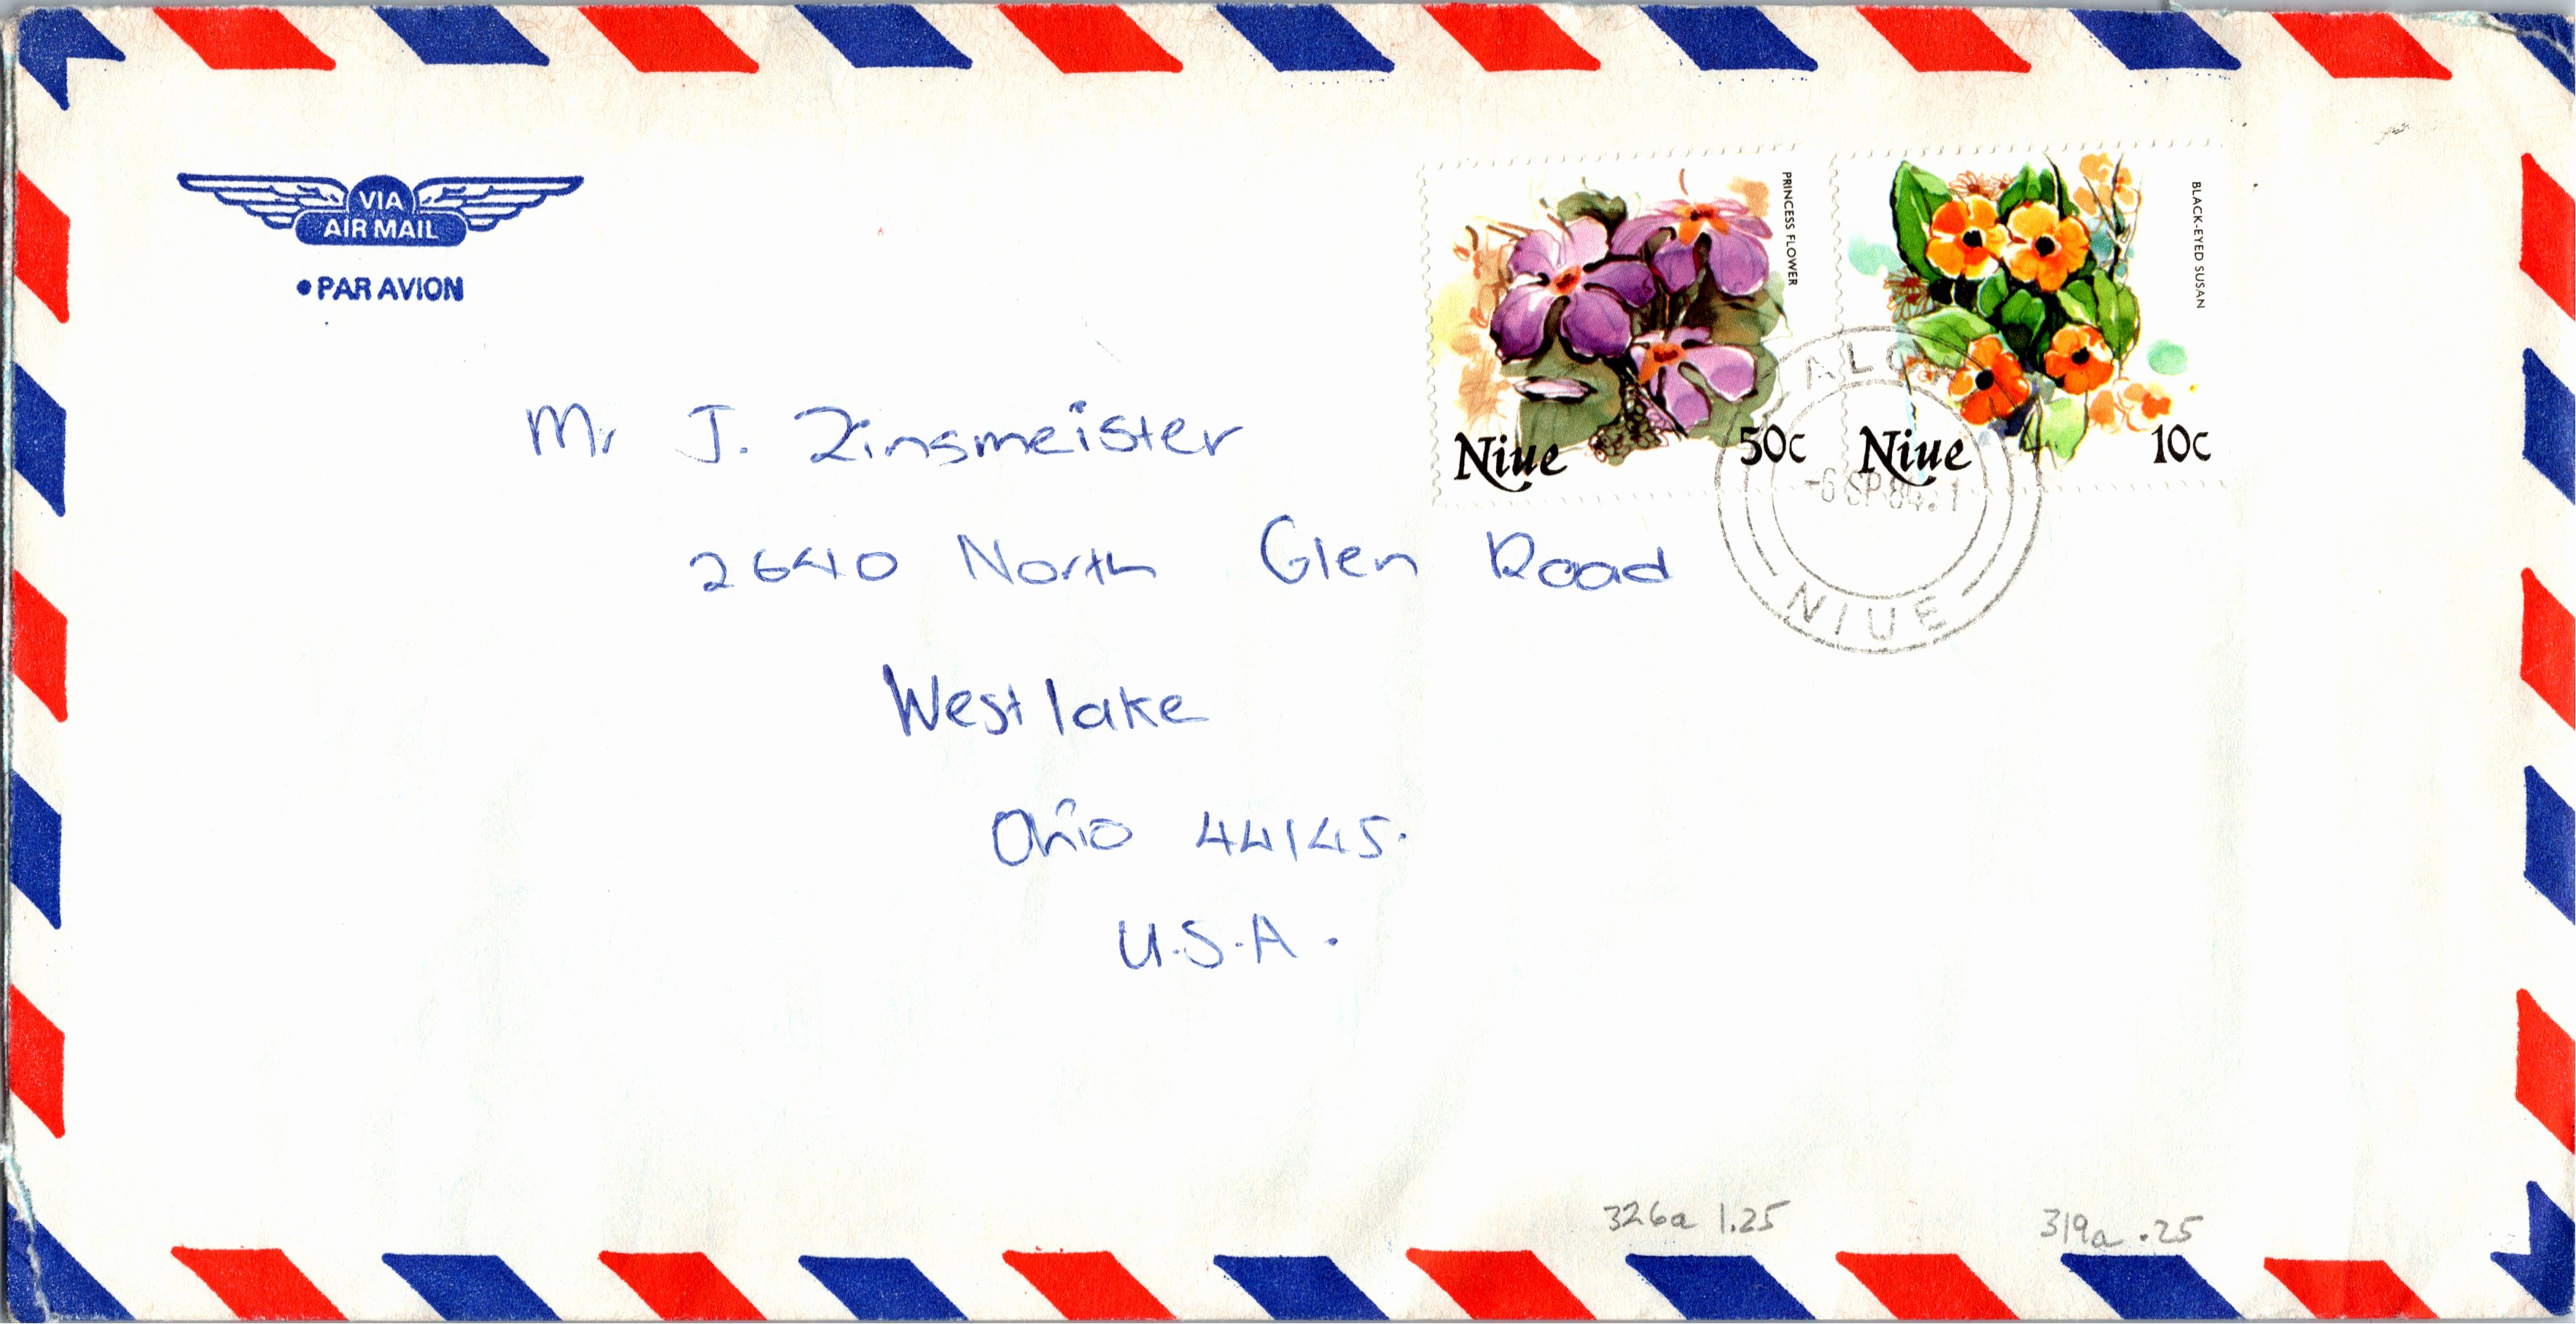 VIA
AIR MAIL
•PAR AVION
PRINCESS FLOWER
BLACK-EYED SUSAN
Niue 50c
Niue 10c
-6 SP 84.1
NIUE
Mr J. Zinsmeister
2640 North Glen Road
Westlake
Ohio 44145.
U.S.A.
326a 1.25
319a .25